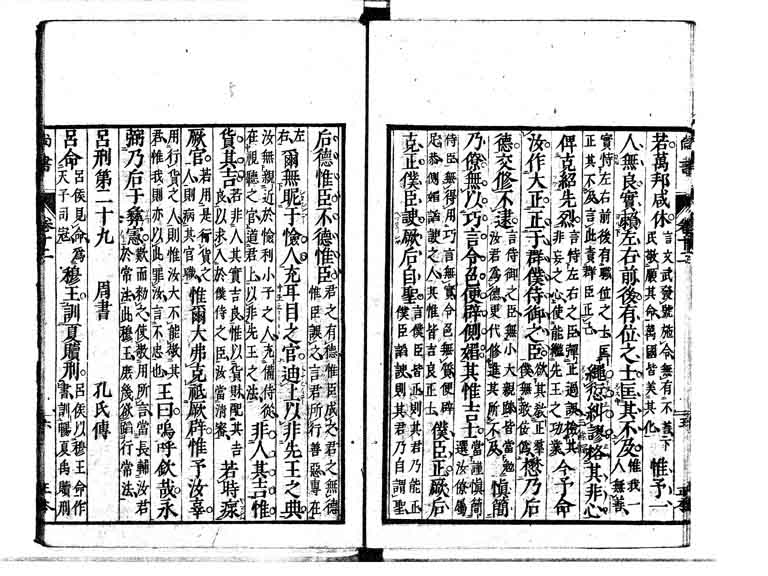 若萬邦咸休言文武發號施令無有不善下民敬順其命萬國皆美其化惟予一
人無良實賴左右前後有位之士匡其不及惟我一人無善
實恃左右前後有職位之士匡正其不及言此責群臣正己繩愆糾謬格其非心
俾克紹先烈言恃左右之臣彈正過誤檢其非妄之心使能繼先王之功業今予命
汝作大正正于群僕侍御之臣欲其教正群僕無敢佞偽懋乃后
德交修不逮言侍御之臣無小大親疏皆當勉汝君為德更代修進其所不及慎簡
乃僚無以巧言令色便辟側媚其惟吉士當謹慎簡選汝僚屬
侍臣無得用巧言無實令色無質便辟足恭側媚諂諛之人其惟皆吉良正士僕臣正厥后
克正僕臣諛厥后自聖言僕臣皆正則其君乃能正僕臣諂諛則其君乃自謂聖
后德惟臣不德惟臣君之有德惟臣成之君之無德惟臣誤之言君所行善惡專在
左右爾無昵于憸人充耳目之官迪上以非先王之典
汝無親近於憸利小子之人充備侍從在視聽之官道君上以非先王之法非人其吉惟
貨其吉若非人其實吉良惟以貨財配其吉良以求入於僕侍之臣汝當清審若時瘝
厥官若用是行貨之人則病其官職惟爾大弗克祗厥辟惟予汝辜
用行貨之人則惟汝大不能敬其君惟我則亦以此罪汝言不忠也王曰嗚呼欽哉永
弼乃后于彝憲歎而勑之使敬用所言當長輔汝君於常法此穆王庶幾欲蹈行常法
呂刑第二十九 周書 孔氏傳
呂命呂侯見命為天子司寇穆王訓夏贖刑呂侯以穆王命作書訓暢夏禹贖刑
尚書 卷十二